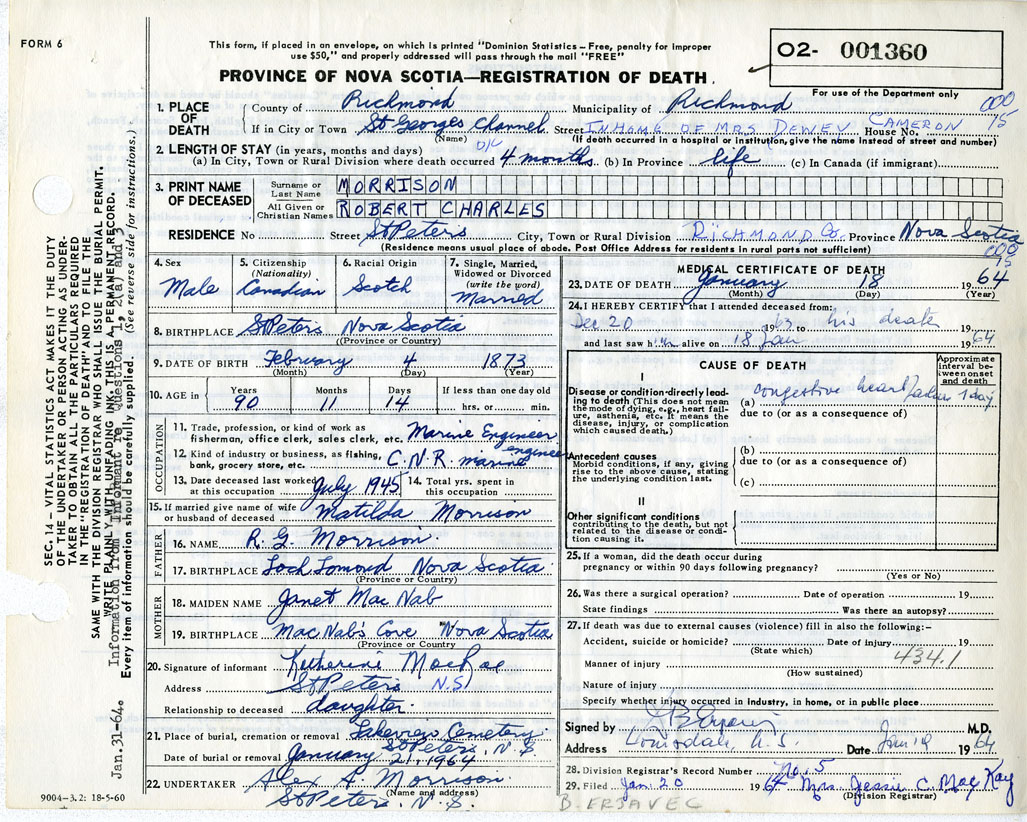 FORM 6
This form, if placed in an envelope, on which is printed "Dominion Statistics – Free, penalty for improper
use $50," and properly addressed will pass through the mail "FREE"
O2- 001360
PROVINCE OF NOVA SCOTIA—REGISTRATION OF DEATH.
For use of the Department only
000
75
1. PLACE OF DEATH
County of Richmond Municipality of Richmond
If in City or Town St Georges Channel Street IN HOME OF MRS DEWEY CAMERON House No.
(Name) (If death occurred in a hospital or institution, give the name instead of street and number)
2. LENGTH OF STAY (in years, months and days)
(a) In City, Town or Rural Division where death occurred 4 months (b) In Province life (c) In Canada (if immigrant)
3. PRINT NAME OF DECEASED
Surname or Last Name MORRISON
All Given or Christian Names ROBERT CHARLES
RESIDENCE No Street St Peters City, Town or Rural Division RICHMOND Co. Province Nova Scotia
(Residence means usual place of abode. Post Office Address for residents in rural parts not sufficient)
000
75
4. Sex Male
5. Citizenship (Nationality) Canadian
6. Racial Origin Scotch
7. Single, Married, Widowed or Divorced (write the word) Married
8. BIRTHPLACE St Peters Nova Scotia
(Province or Country)
9. DATE OF BIRTH February 4 1873
(Month) (Day) (Year)
10. AGE in Years 90 Months 11 Days 14 If less than one day old hrs. or min.
OCCUPATION
11. Trade, profession, or kind of work as fisherman, office clerk, sales clerk, etc. Marine Engineer
12. Kind of industry or business, as fishing, bank, grocery store, etc. C.N.R. marine engineer
13. Date deceased last worked at this occupation July 1945 14. Total yrs. spent in this occupation
15. If married give name of wife or husband of deceased Matilda Morrison
FATHER
16. NAME R. G. Morrison
17. BIRTHPLACE Loch Lomond Nova Scotia
(Province or Country)
MOTHER
18. MAIDEN NAME Janet Mac Nab
19. BIRTHPLACE Mac Nab's Cove Nova Scotia
(Province or Country)
20. Signature of informant Katherine MacRae
Address St Peters N.S.
Relationship to deceased daughter
21. Place of burial, cremation or removal Lakeview Cemetery St Peters, N.S
Date of burial or removal January 21, 1964
22. UNDERTAKER Alex A. Morrison
(Name and address)
St Peters, N.S.
9004–3.2: 18-5-60
MEDICAL CERTIFICATE OF DEATH
23. DATE OF DEATH January 18 1964
(Month) (Day) (Year)
24. I HEREBY CERTIFY that I attended deceased from:
Dec 20 1963 to his death 1964
and last saw him alive on 18 Jan 1964
CAUSE OF DEATH
Approximate interval between onset and death
I
Disease or condition directly leading to death (This does not mean the mode of dying, e.g., heart failure, asthenia, etc. It means the disease, injury, or complication which caused death.)
(a) congestive heart failure 1 day
due to (or as a consequence of)
Antecedent causes
Morbid conditions, if any, giving rise to the above cause, stating the underlying condition last.
(b)
due to (or as a consequence of)
(c)
II
Other significant conditions
contributing to the death, but not related to the disease or condition causing it.
25. If a woman, did the death occur during
pregnancy or within 90 days following pregnancy?
(Yes or No)
26. Was there a surgical operation? Date of operation 19
State findings Was there an autopsy?
27. If death was due to external causes (violence) fill in also the following:–
Accident, suicide or homicide? Date of injury 19
(State which)
434.1
Manner of injury
(How sustained)
Nature of injury
Specify whether injury occurred in industry, in home, or in public place
Signed by M.D.
Address Louisdale, N.S. Date Jan 19 1964
28. Division Registrar's Record Number No. 5
29. Filed Jan. 20 1964 Mrs. Jessie C. Mac Kay
(Division Registrar)
B. ERJAVEC
SEC. 14 – VITAL STATISTICS ACT MAKES IT THE DUTY
OF THE UNDERTAKER OR PERSON ACTING AS UNDER-
TAKER TO OBTAIN ALL THE PARTICULARS REQUIRED
IN THE REGISTRATION OF DEATH AND TO FILE THE
SAME WITH THE DIVISION REGISTRAR WHO SHALL ISSUE THE BURIAL PERMIT.
WRITE PLAINLY WITH UNFADING INK. THIS IS A PERMANENT RECORD.
Jan.31-64. Information from Informant re Questions 1, 2(a) and 3
Every item of information should be carefully supplied. (See reverse side for instructions.)